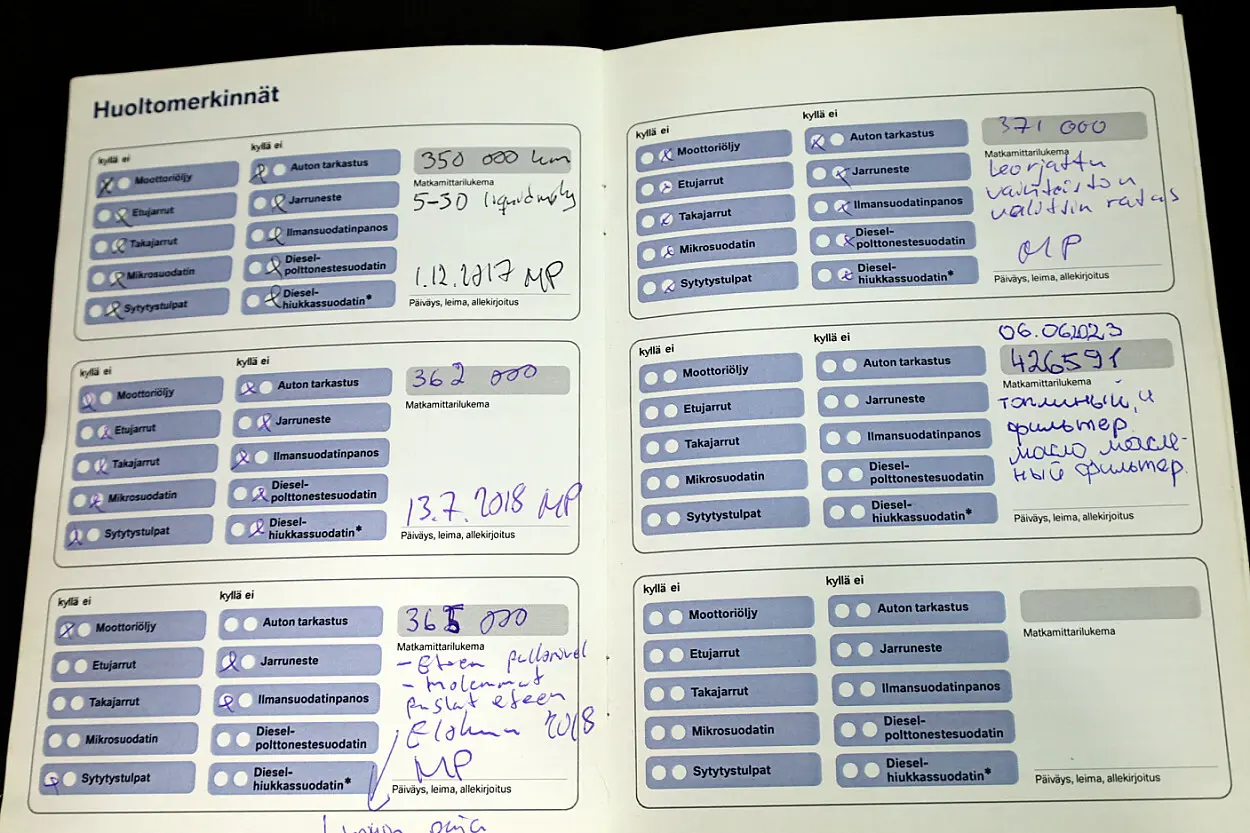 Huoltomerkinnät
kyllä ei
kyllä ei
Moottoriöljy
Auton tarkastus
350 000 km
Matkamittarilukema
Etujarrut
Jarruneste
5-30 liquid moly
Takajarrut
Ilmansuodatinpanos
Mikrosuodatin
Diesel-
polttonestesuodatin
1.12.2017 MP
Sytytystulpat
Diesel-
hiukkassuodatin*
Päiväys, leima, allekirjoitus
kyllä ei
kyllä ei
Moottoriöljy
Auton tarkastus
362 000
Matkamittarilukema
Etujarrut
Jarruneste
Takajarrut
Ilmansuodatinpanos
Mikrosuodatin
Diesel-
polttonestesuodatin
13.7.2018 MP
Sytytystulpat
Diesel-
hiukkassuodatin*
Päiväys, leima, allekirjoitus
kyllä ei
kyllä ei
Moottoriöljy
Auton tarkastus
365 000
Matkamittarilukema
Etujarrut
Jarruneste
- Eteen
Takajarrut
Ilmansuodatinpanos
- Molemmat
puslat eteen
Mikrosuodatin
Diesel-
polttonestesuodatin
Elokuu 2018
Sytytystulpat
Diesel-
hiukkassuodatin*
MP
Päiväys, leima, allekirjoitus
kyllä ei
kyllä ei
Moottoriöljy
Auton tarkastus
371 000
Matkamittarilukema
Etujarrut
Jarruneste
korjattu
vaihteiston
Takajarrut
Ilmansuodatinpanos
valitsin ratas
Mikrosuodatin
Diesel-
polttonestesuodatin
MP
Sytytystulpat
Diesel-
hiukkassuodatin*
Päiväys, leima, allekirjoitus
kyllä ei
kyllä ei
06.06.2023
Moottoriöljy
Auton tarkastus
426591
Matkamittarilukema
Etujarrut
Jarruneste
топлиный, и
фильтер.
Takajarrut
Ilmansuodatinpanos
масло масле-
ный фильтер.
Mikrosuodatin
Diesel-
polttonestesuodatin
Sytytystulpat
Diesel-
hiukkassuodatin*
Päiväys, leima, allekirjoitus
kyllä ei
kyllä ei
Moottoriöljy
Auton tarkastus
Matkamittarilukema
Etujarrut
Jarruneste
Takajarrut
Ilmansuodatinpanos
Mikrosuodatin
Diesel-
polttonestesuodatin
Sytytystulpat
Diesel-
hiukkassuodatin*
Päiväys, leima, allekirjoitus